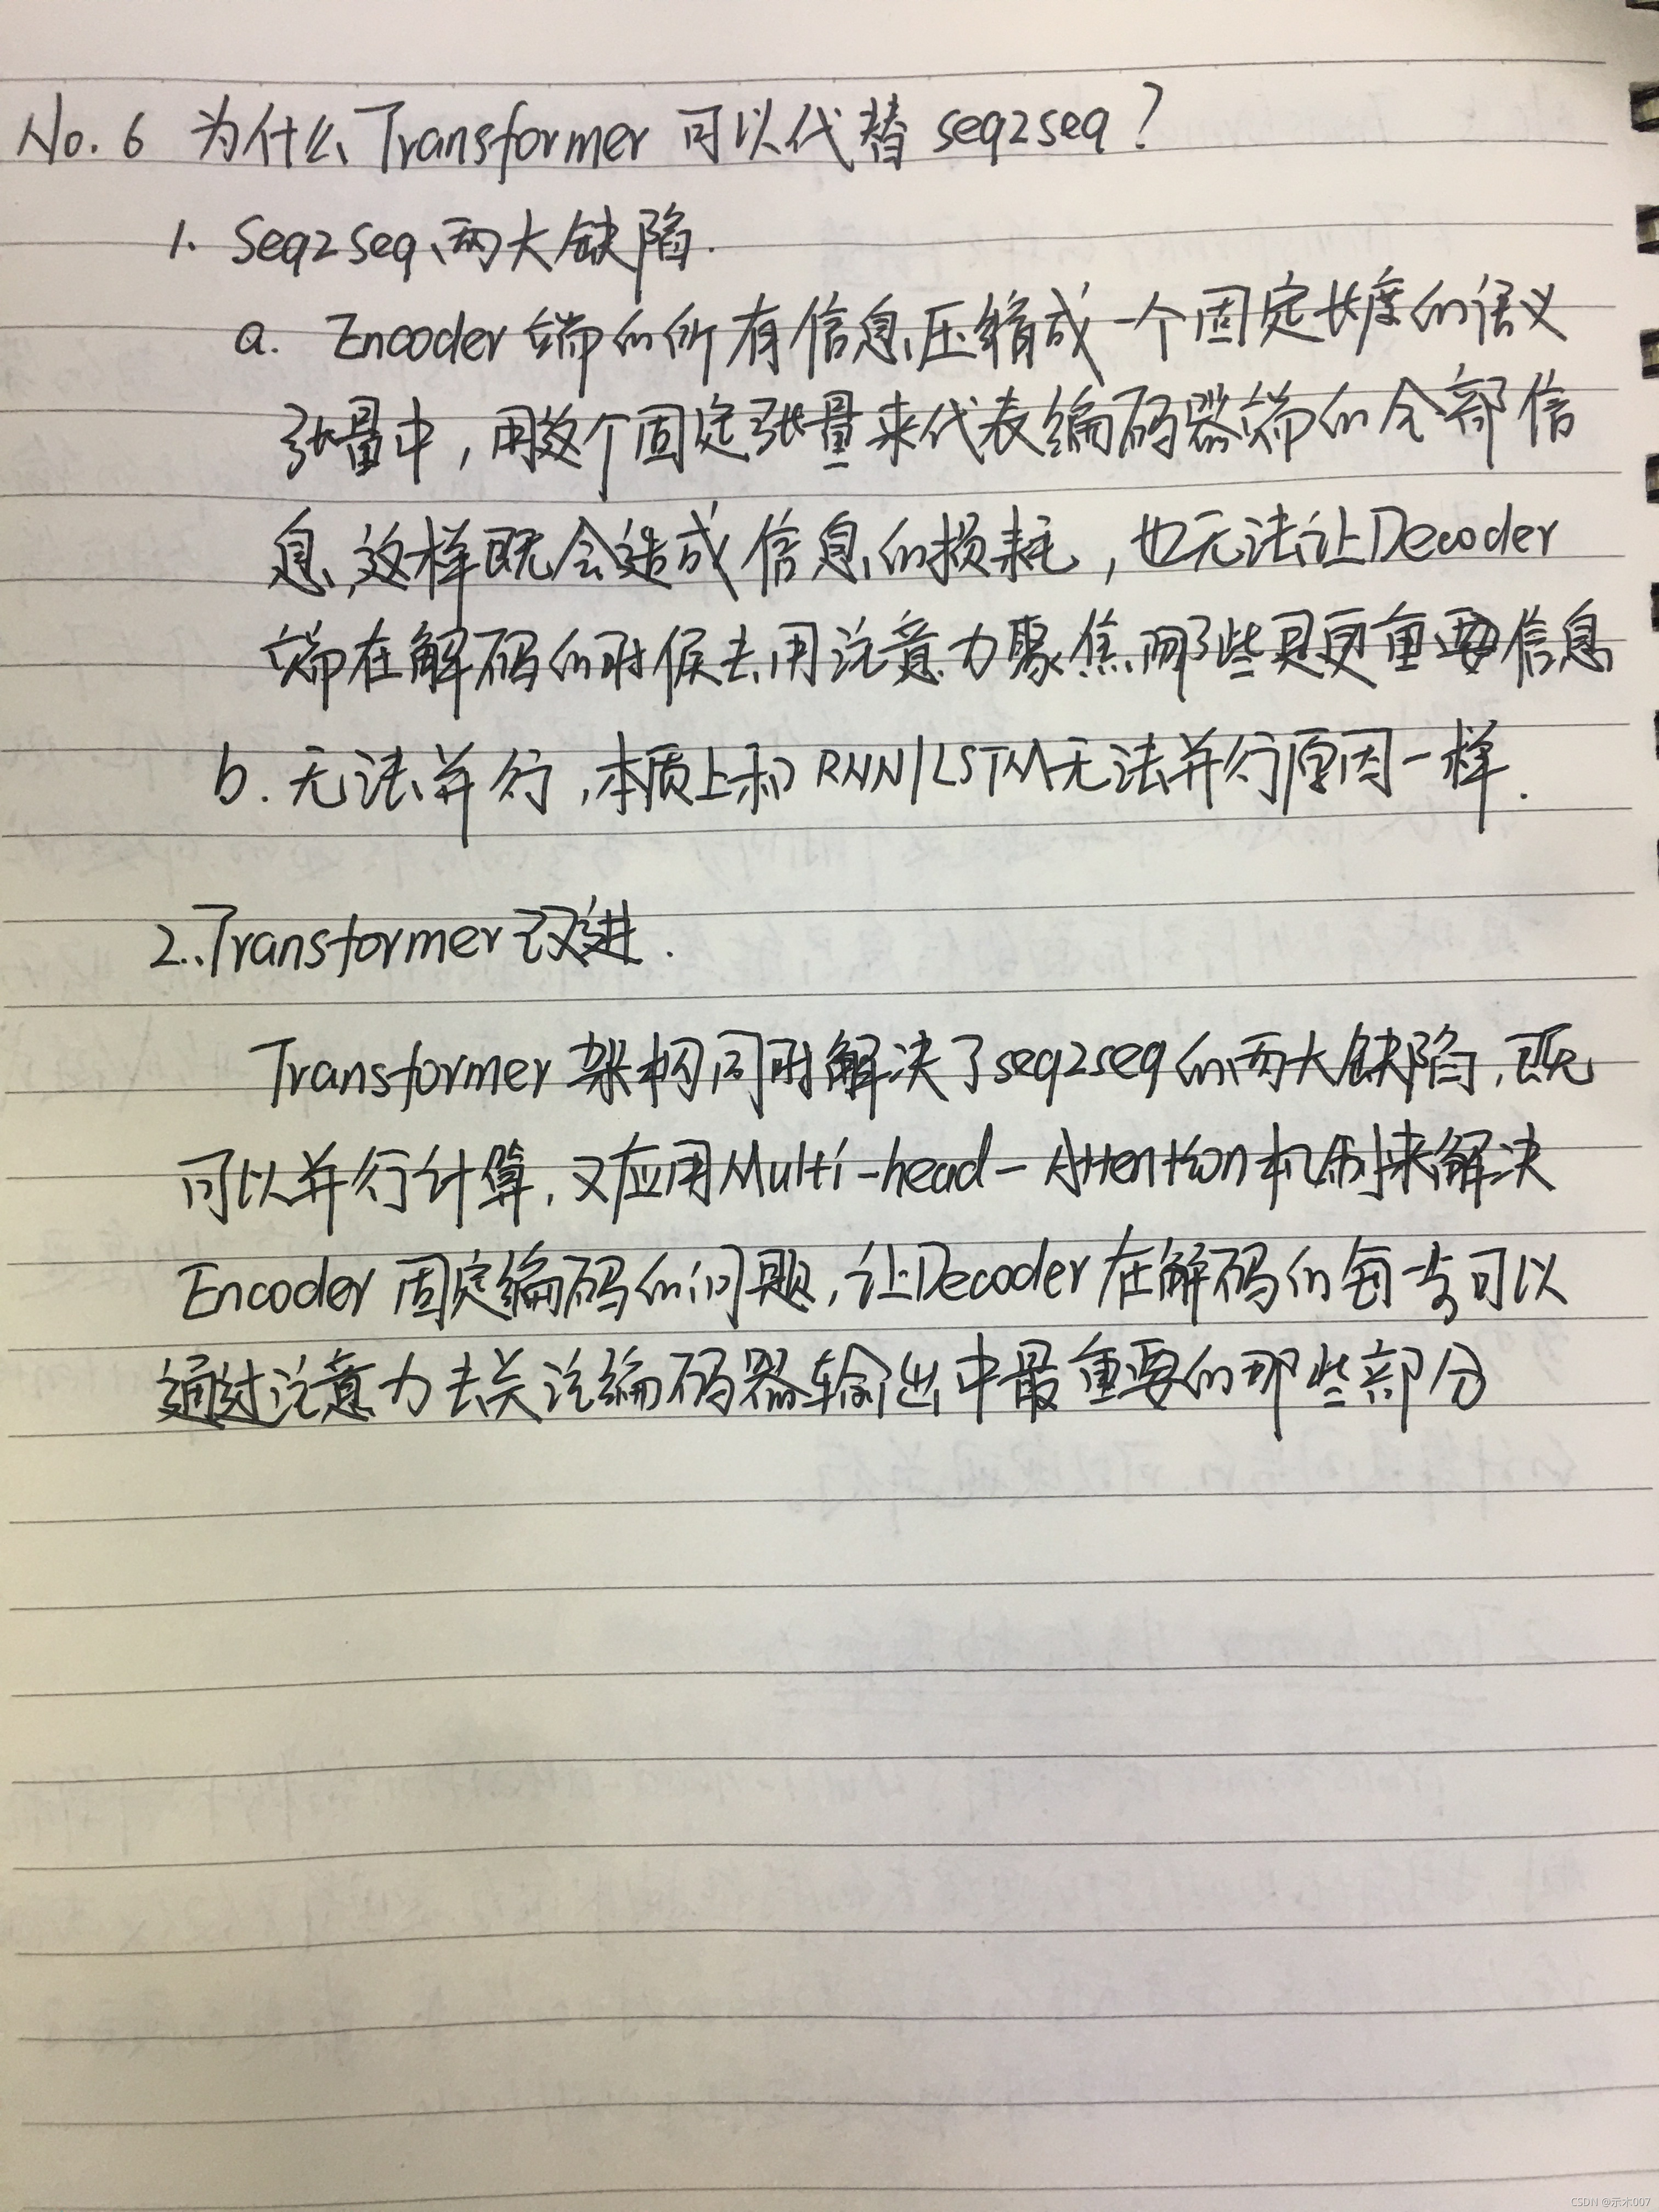 No. 6 为什么 Transformer 可以代替 seq2seq?
1. Seq2Seq 两大缺陷.
a. Encoder 端的所有信息压缩成一个固定长度的语义
张量中,用这个固定张量来代表编码器端的全部信
息,这样既会造成信息的损耗,也无法让Decoder
端在解码的时候去用注意力聚焦哪些是更重要信息
b. 无法并行,本质上和 RNN/LSTM无法并行原因一样.
2. Transformer 改进.
Transformer 架构同时解决了seq2seq的两大缺陷,既
可以并行计算,又应用Multi-head-Attention机制来解决
Encoder 固定编码的问题,让Decoder在解码的每一步可以
通过注意力去关注编码器输出中最重要的那些部分
CSDN @示木007